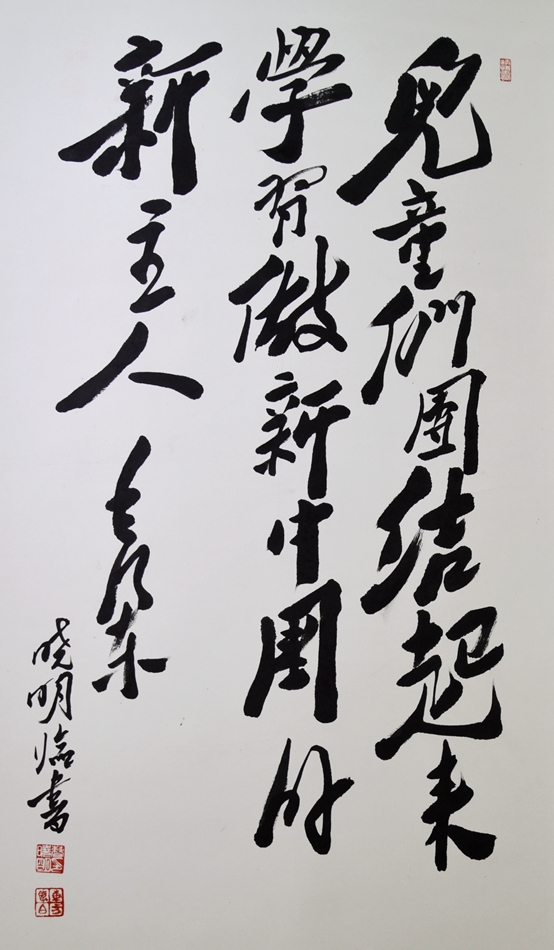 兒童們團結起来
學習做新中國的
新主人
毛澤东
晓明临書